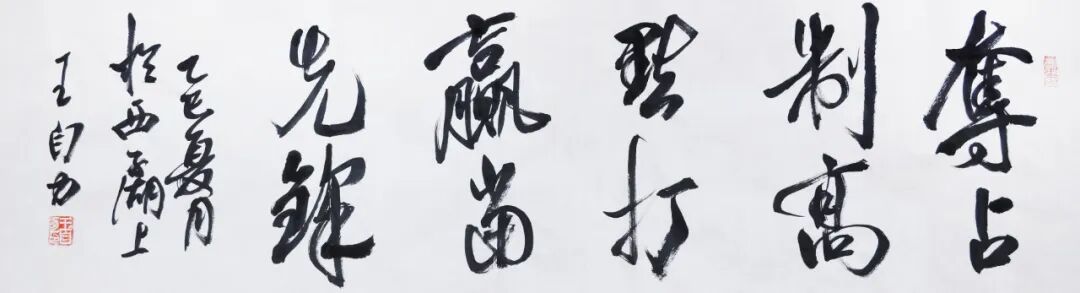 奪占
制高
點打
贏當
先鋒
乙巳夏月
於西灞上
王自力